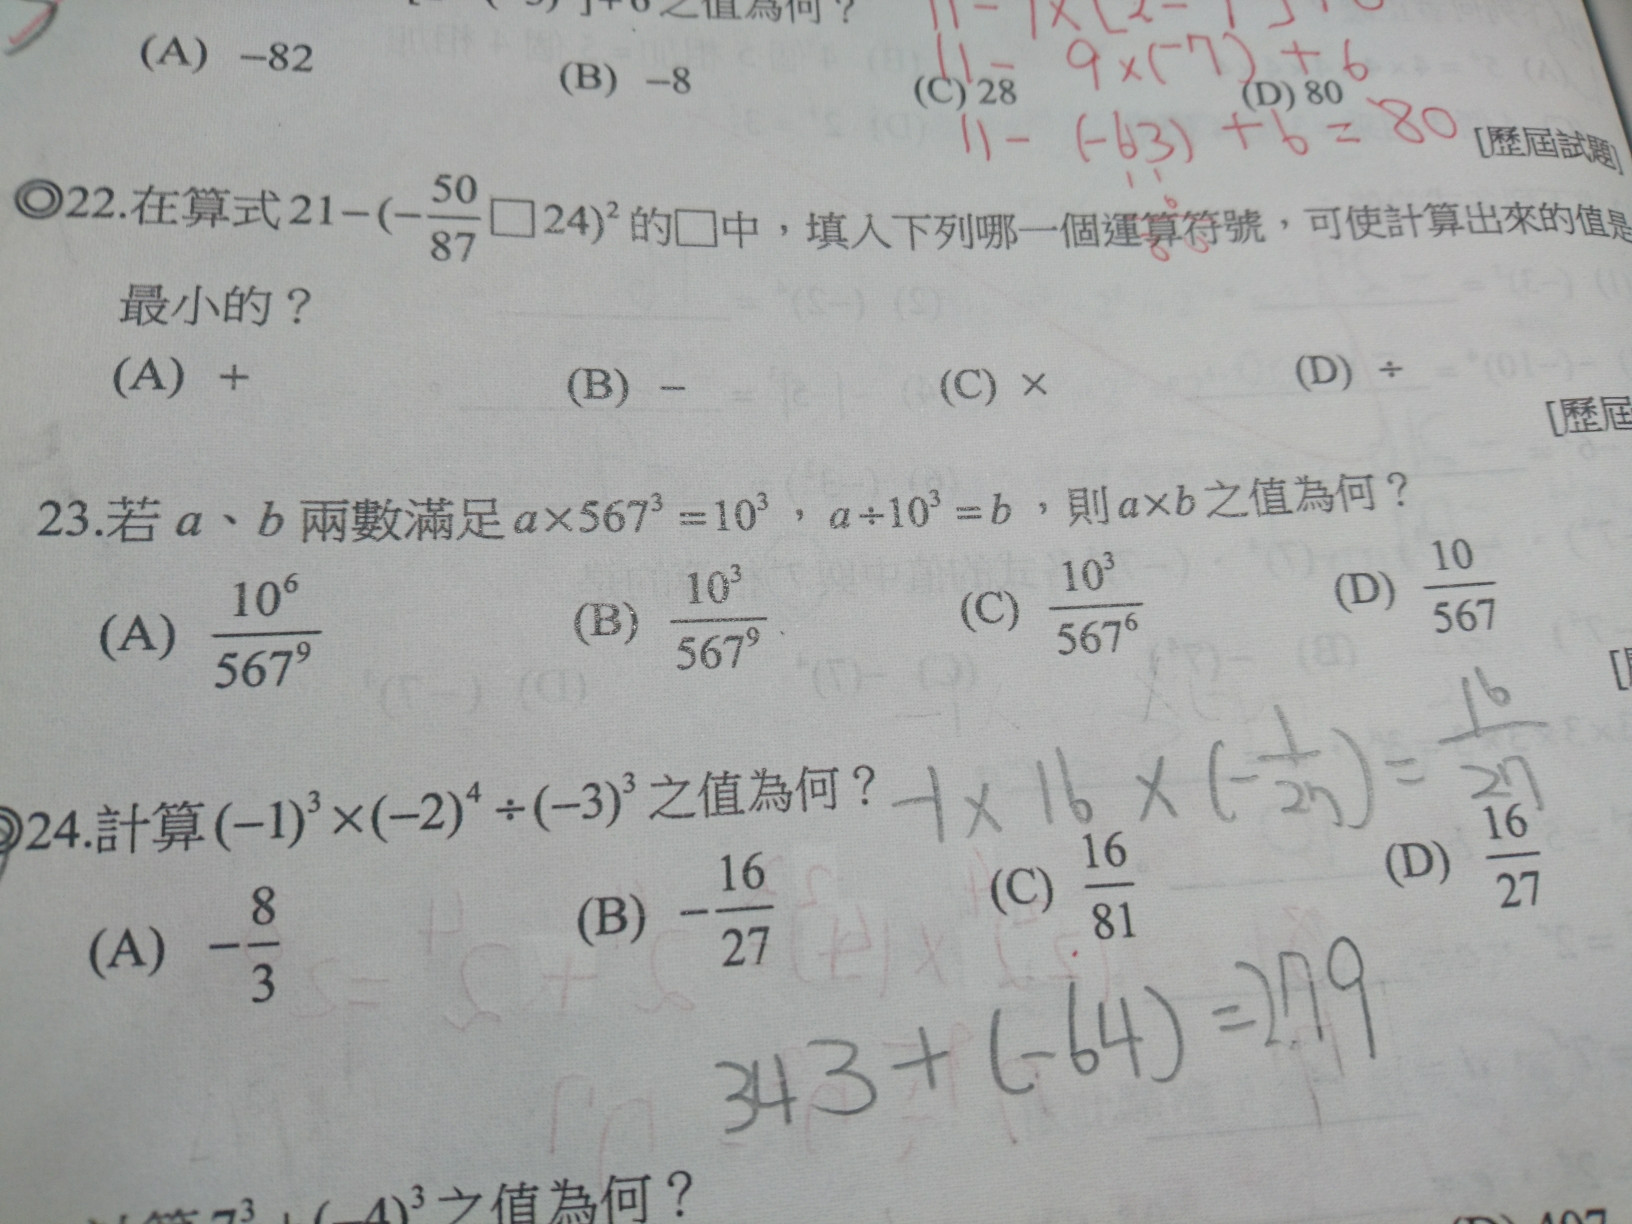 之值為何？
(A) −82
(B) −8
(C) 28
(D) 80
11− 9×(−7)+6
11−(−63)+6=80
[歷屆試題]
◎22.在算式21−(−50/87□24)²的□中，填入下列哪一個運算符號，可使計算出來的值是
最小的？
(A) +
(B) −
(C) ×
(D) ÷
[歷屆
23.若a、b兩數滿足a×567³=10³，a÷10³=b，則a×b之值為何？
(A) 10⁶/567⁹
(B) 10³/567⁹
(C) 10³/567⁶
(D) 10/567
◎24.計算(−1)³×(−2)⁴÷(−3)³之值為何？
−1×16×(−1/27)=16/27
(A) −8/3
(B) −16/27
(C) 16/81
(D) 16/27
343+(−64)=279
7³+(−4)³之值為何？